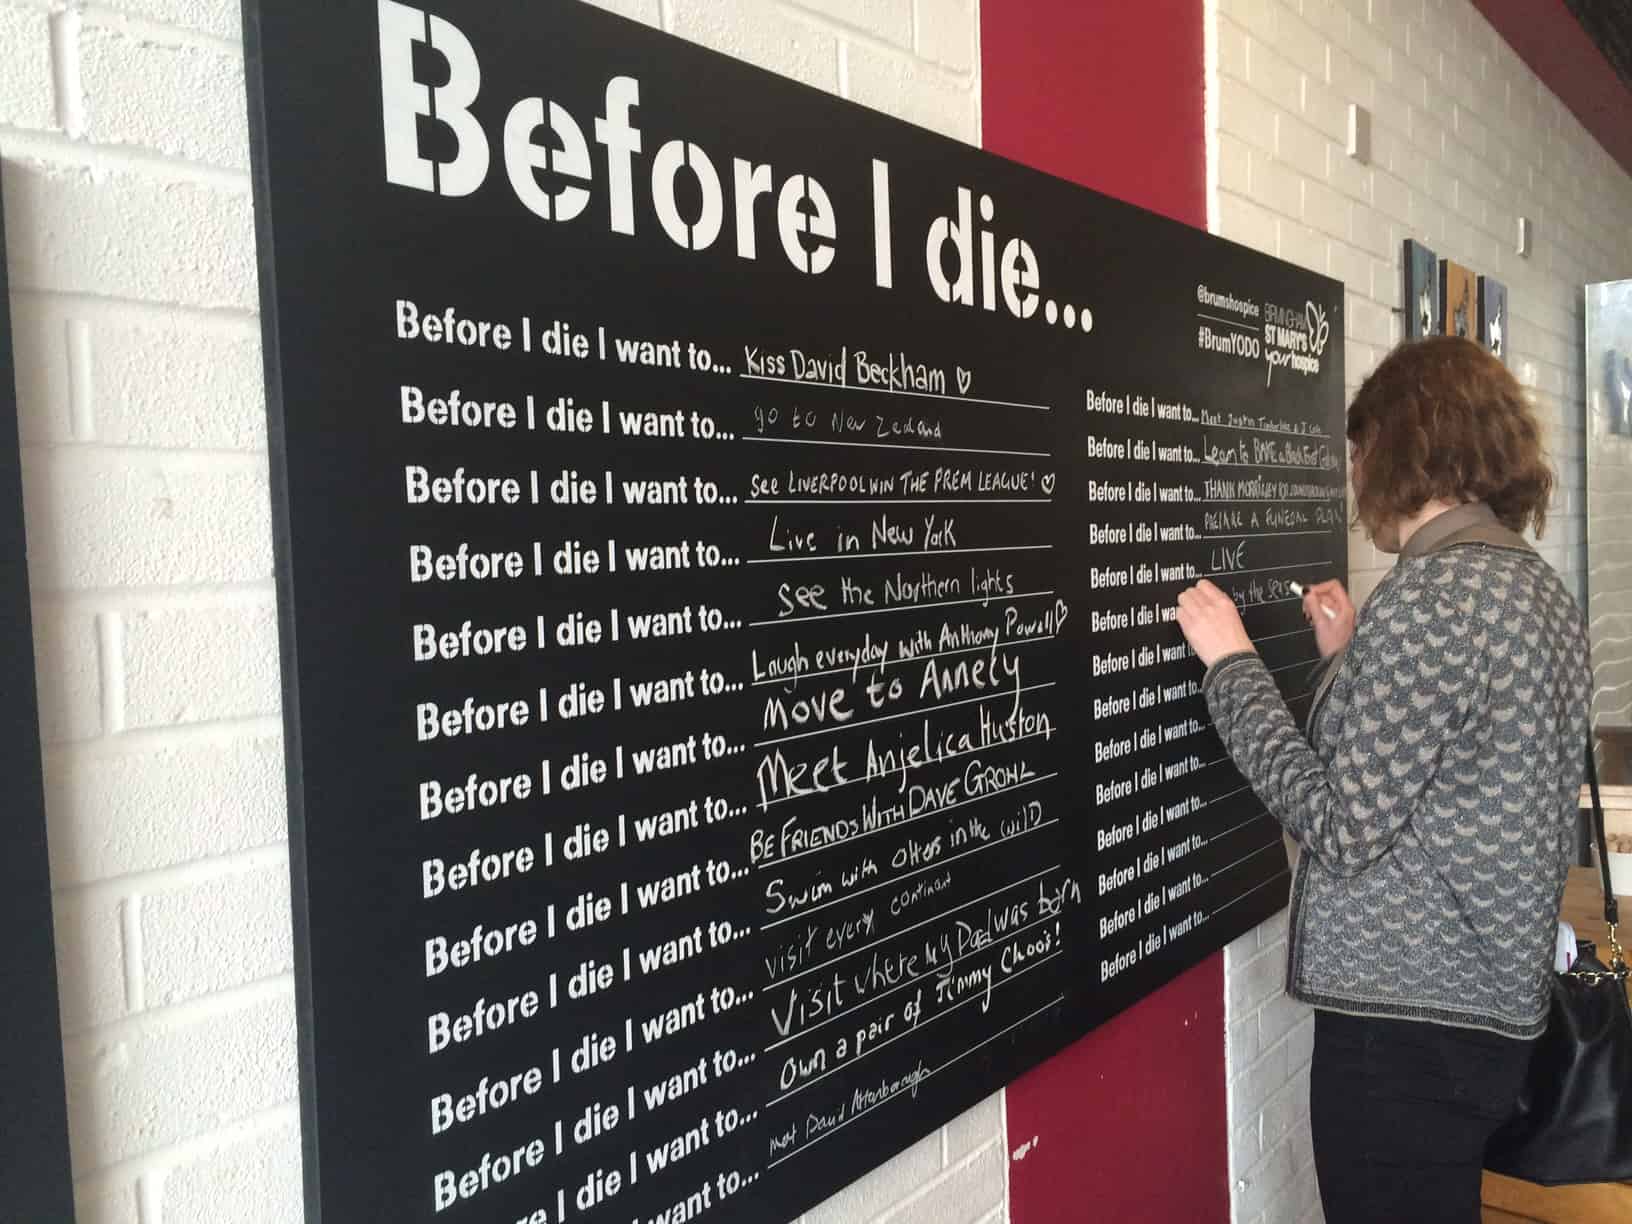 Before I die...
@brumshospice
#BrumYODO
BIRMINGHAM
ST MARY'S
your hospice
Before I die I want to... Kiss David Beckham ♡
Before I die I want to... go to New Zealand
Before I die I want to... See LIVERPOOL WIN THE PREM LEAGUE! ♡
Before I die I want to... Live in New York
Before I die I want to... See the Northern lights
Before I die I want to... Laugh everyday with Anthony Powell ♡
Before I die I want to... Move to Annecy
Before I die I want to... Meet Anjelica Huston
Before I die I want to... BE FRIENDS WITH DAVE GROHL
Before I die I want to... Swim with otters in the wild
Before I die I want to... visit every continant
Before I die I want to... Visit where My Dad was born
e I die I want to... Own a pair of Jimmy Choo's!
want to... meet David Attenborough
Before I die I want to... Meet Justin Timberlake & J Cole
Before I die I want to... Learn to BAKE a Black Forest
Before I die I want to... THANK MORRISSEY FOR
Before I die I want to... PREPARE A FUNERAL PLAN!
Before I die I want to... LIVE
Before I die I wa by the sea
Before I die I want
Before I die I want to...
Before I die I want to...
Before I die I want to...
Before I die I want to...
Before I die I want to...
Before I die I want to...
Before I die I want to...